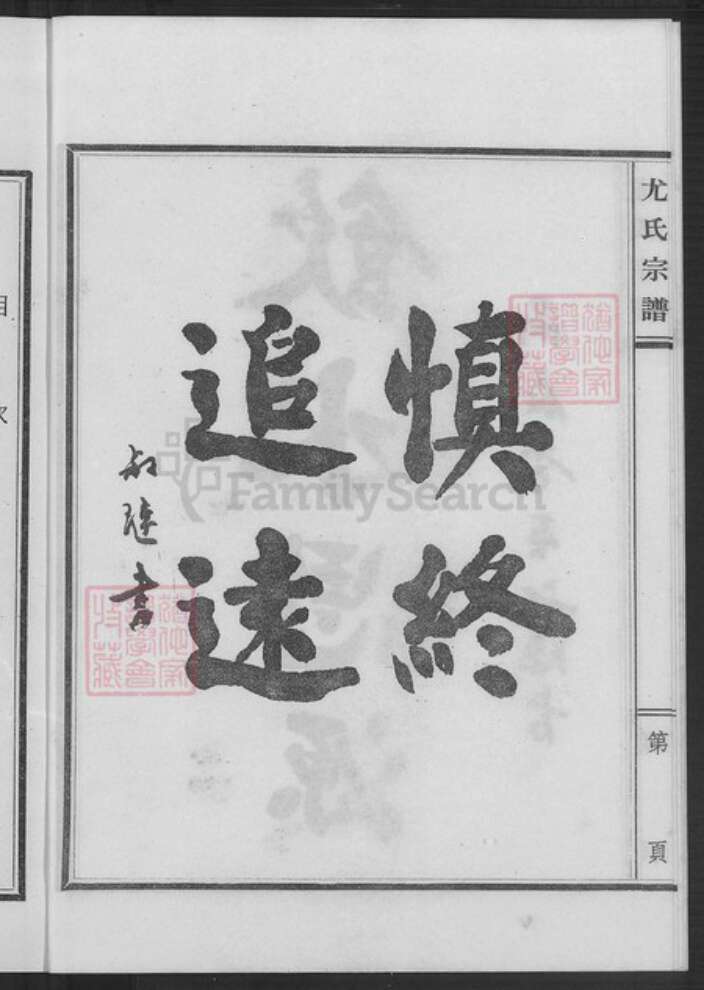 尤氏宗譜
第 頁
慎終
追遠
書
FamilySearch